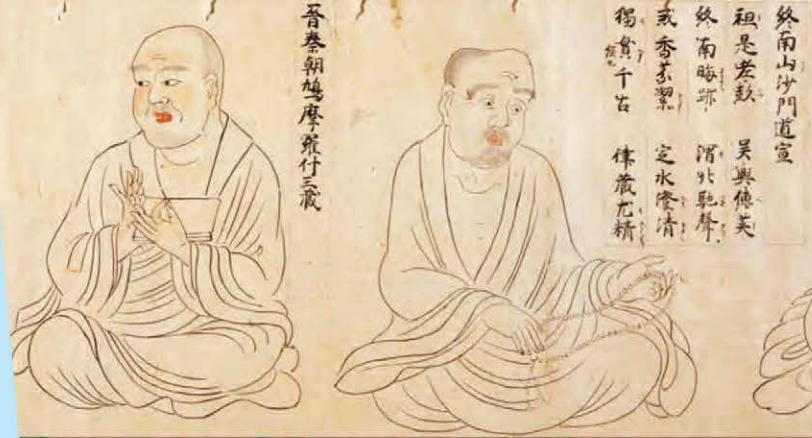 終南山沙門道宣
祖是老彭 吴興傳英
終南晦跡 渭北馳聲
戒香芬潔 定水澄清
獨貫千古 律蔵尤精
晋秦朝鳩摩羅什三蔵